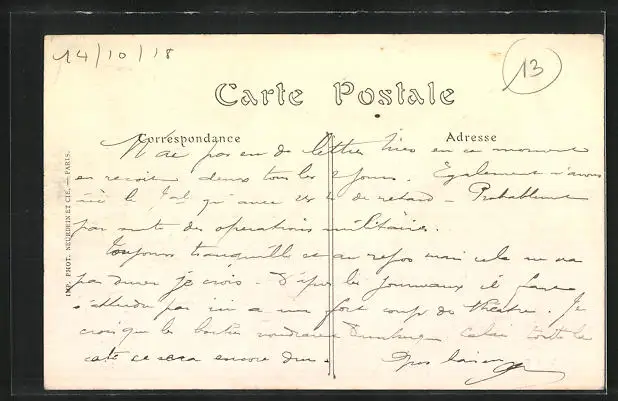 14/10/18
13
Carte Postale
Correspondance
Adresse
N'ai pas eu de lettre hier en ce moment
en reçois deux tous les 2 jours. Également n'avons
le Jal qu'avec 24 h de retard - Probablement
par suite des opérations militaires.
Toujours tranquilles et au repos mais cela ne va
pas durer je crois - D'après les journaux il faut
s'attendre par ici a un fort coup de théâtre. Je
crois que les boches Dunkerque Calais toute la
côte ce sera encore dur. Gros baisers
IMP. PHOT. NEURDEIN ET CIE. — PARIS.